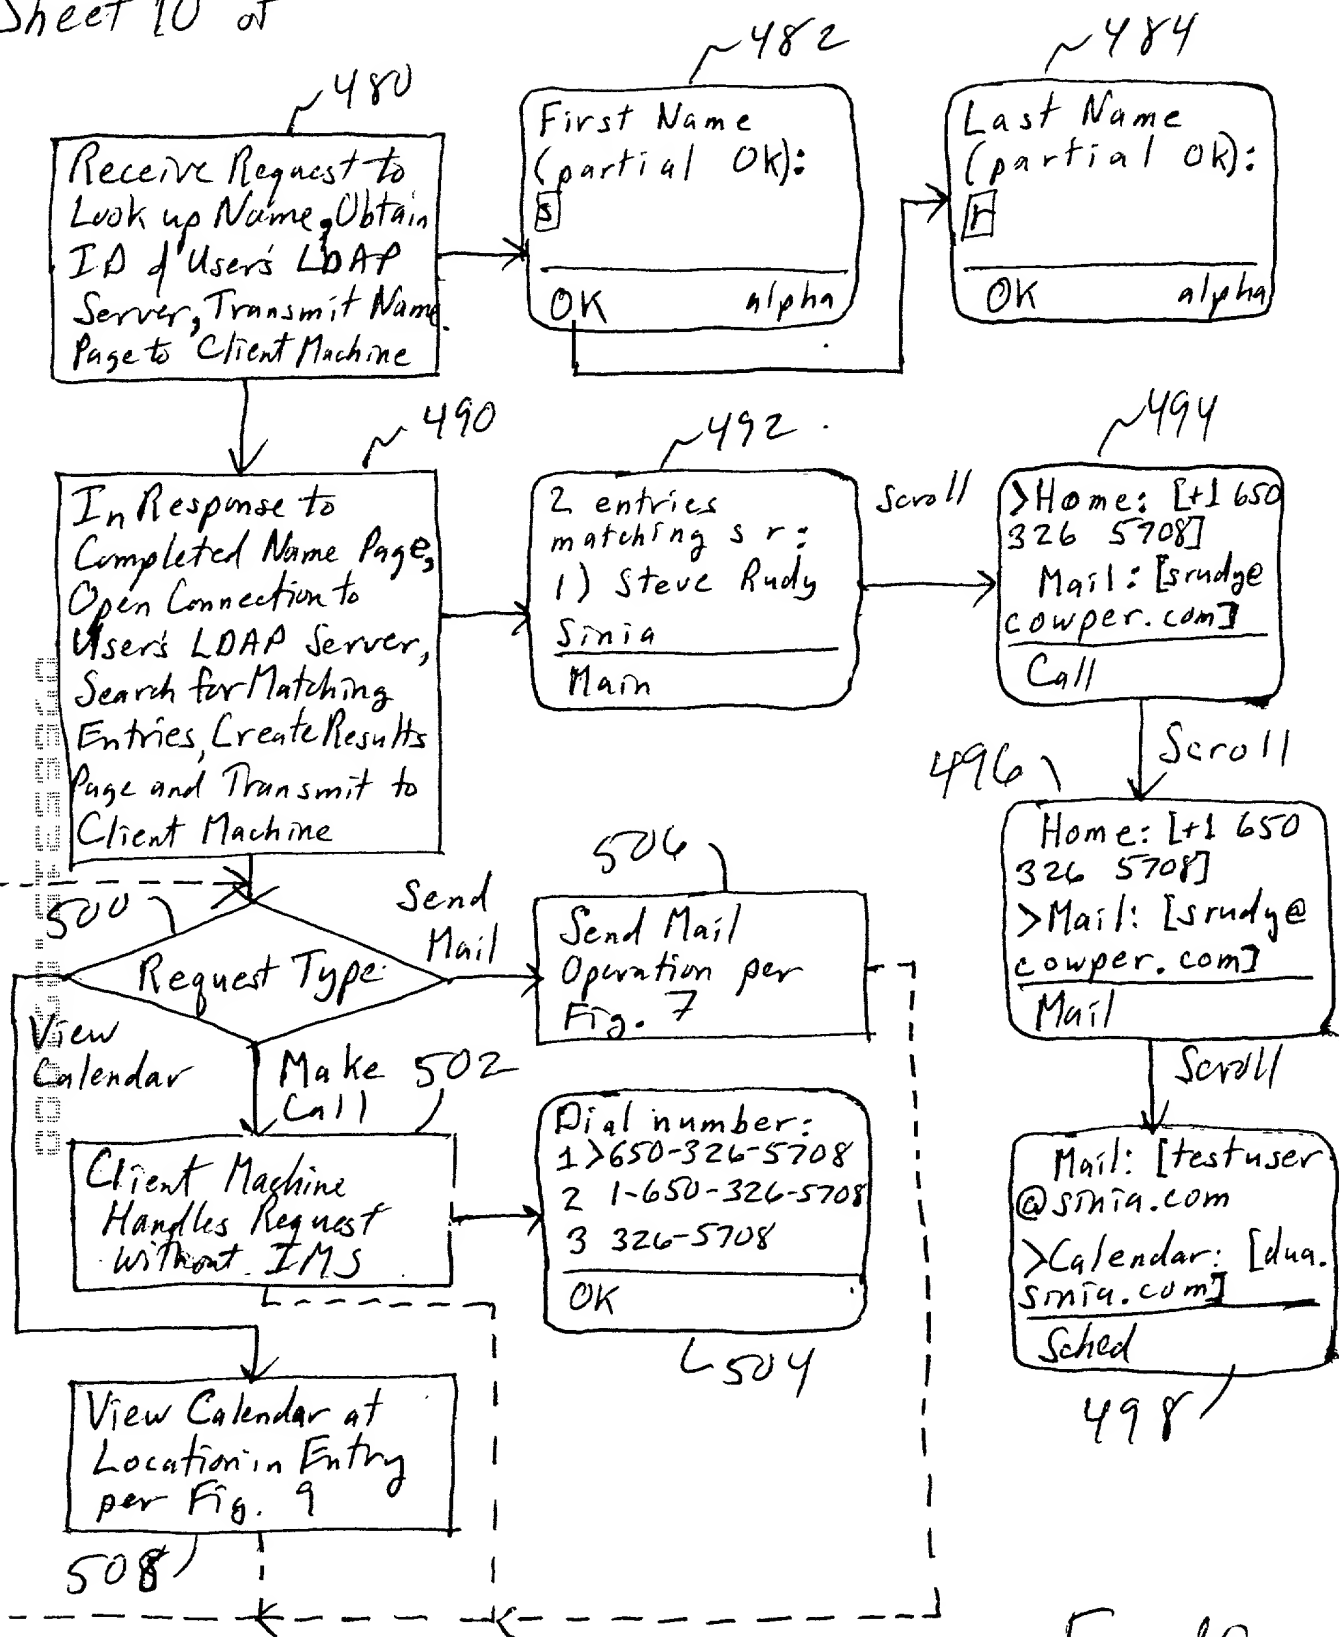 Sheet 10 of
480
Receive Request to
Look up Name, Obtain
ID of User's LDAP
Server, Transmit Name
Page to Client Machine
482
First Name
(partial Ok):
s
OK alpha
484
Last Name
(partial Ok):
r
OK alpha
490
In Response to
Completed Name Page,
Open Connection to
User's LDAP Server,
Search for Matching
Entries, Create Results
Page and Transmit to
Client Machine
492
2 entries
matching s r:
1) Steve Rudy
Sinia
Main
Scroll
494
>Home: [+1 650
326 5708]
Mail: [srudy@
cowper.com]
Call
Scroll
496
Home: [+1 650
326 5708]
>Mail: [srudy@
cowper.com]
Mail
Scroll
Mail: [testuser
@sinia.com
>Calendar: [dua.
sinia.com]
Sched
498
500
Request Type
Send
Mail
506
Send Mail
Operation per
Fig. 7
View
Calendar
Make
Call
502
Client Machine
Handles Request
Without IMS
Dial number:
1 >650-326-5708
2 1-650-326-5708
3 326-5708
OK
504
View Calendar at
Location in Entry
per Fig. 9
508